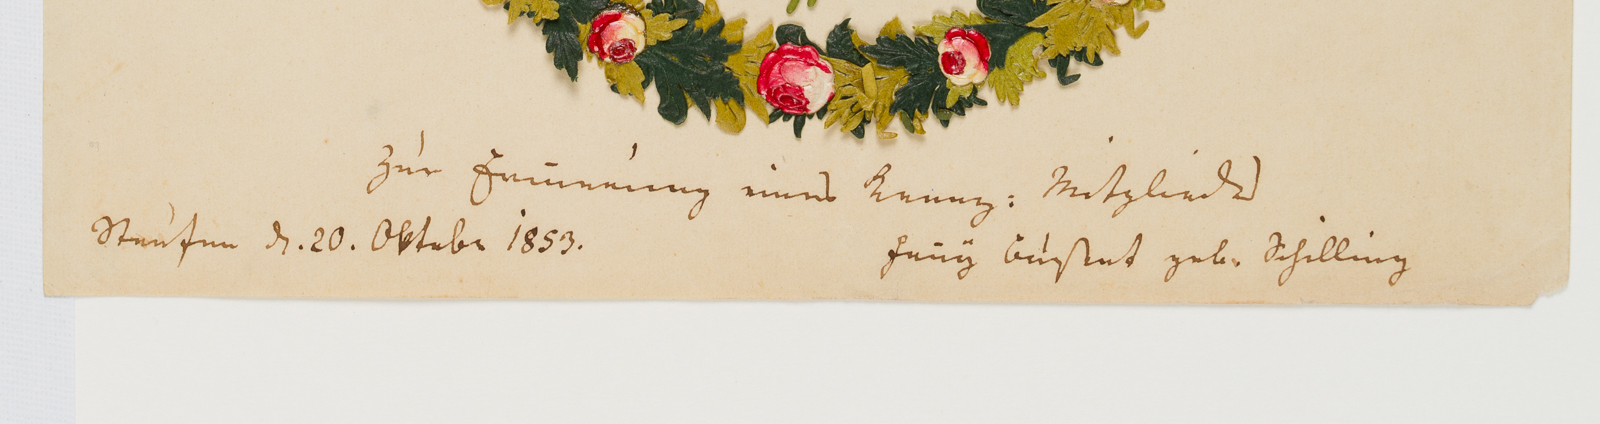 Zur Erinnerung eines Kranz: Mitglieds
Staufen d. 20. Oktobr 1853.
Fanÿ geb. Schilling